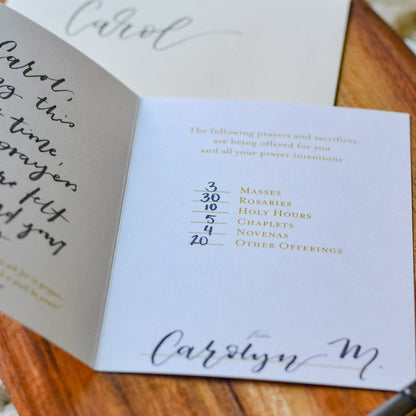 Carol
Carol,
this
time,
prayers
felt
your
The following prayers and sacrifices
are being offered for you
and all your prayer intentions
3 Masses
30 Rosaries
10 Holy Hours
5 Chaplets
4 Novenas
20 Other Offerings
from
Carolyn M.